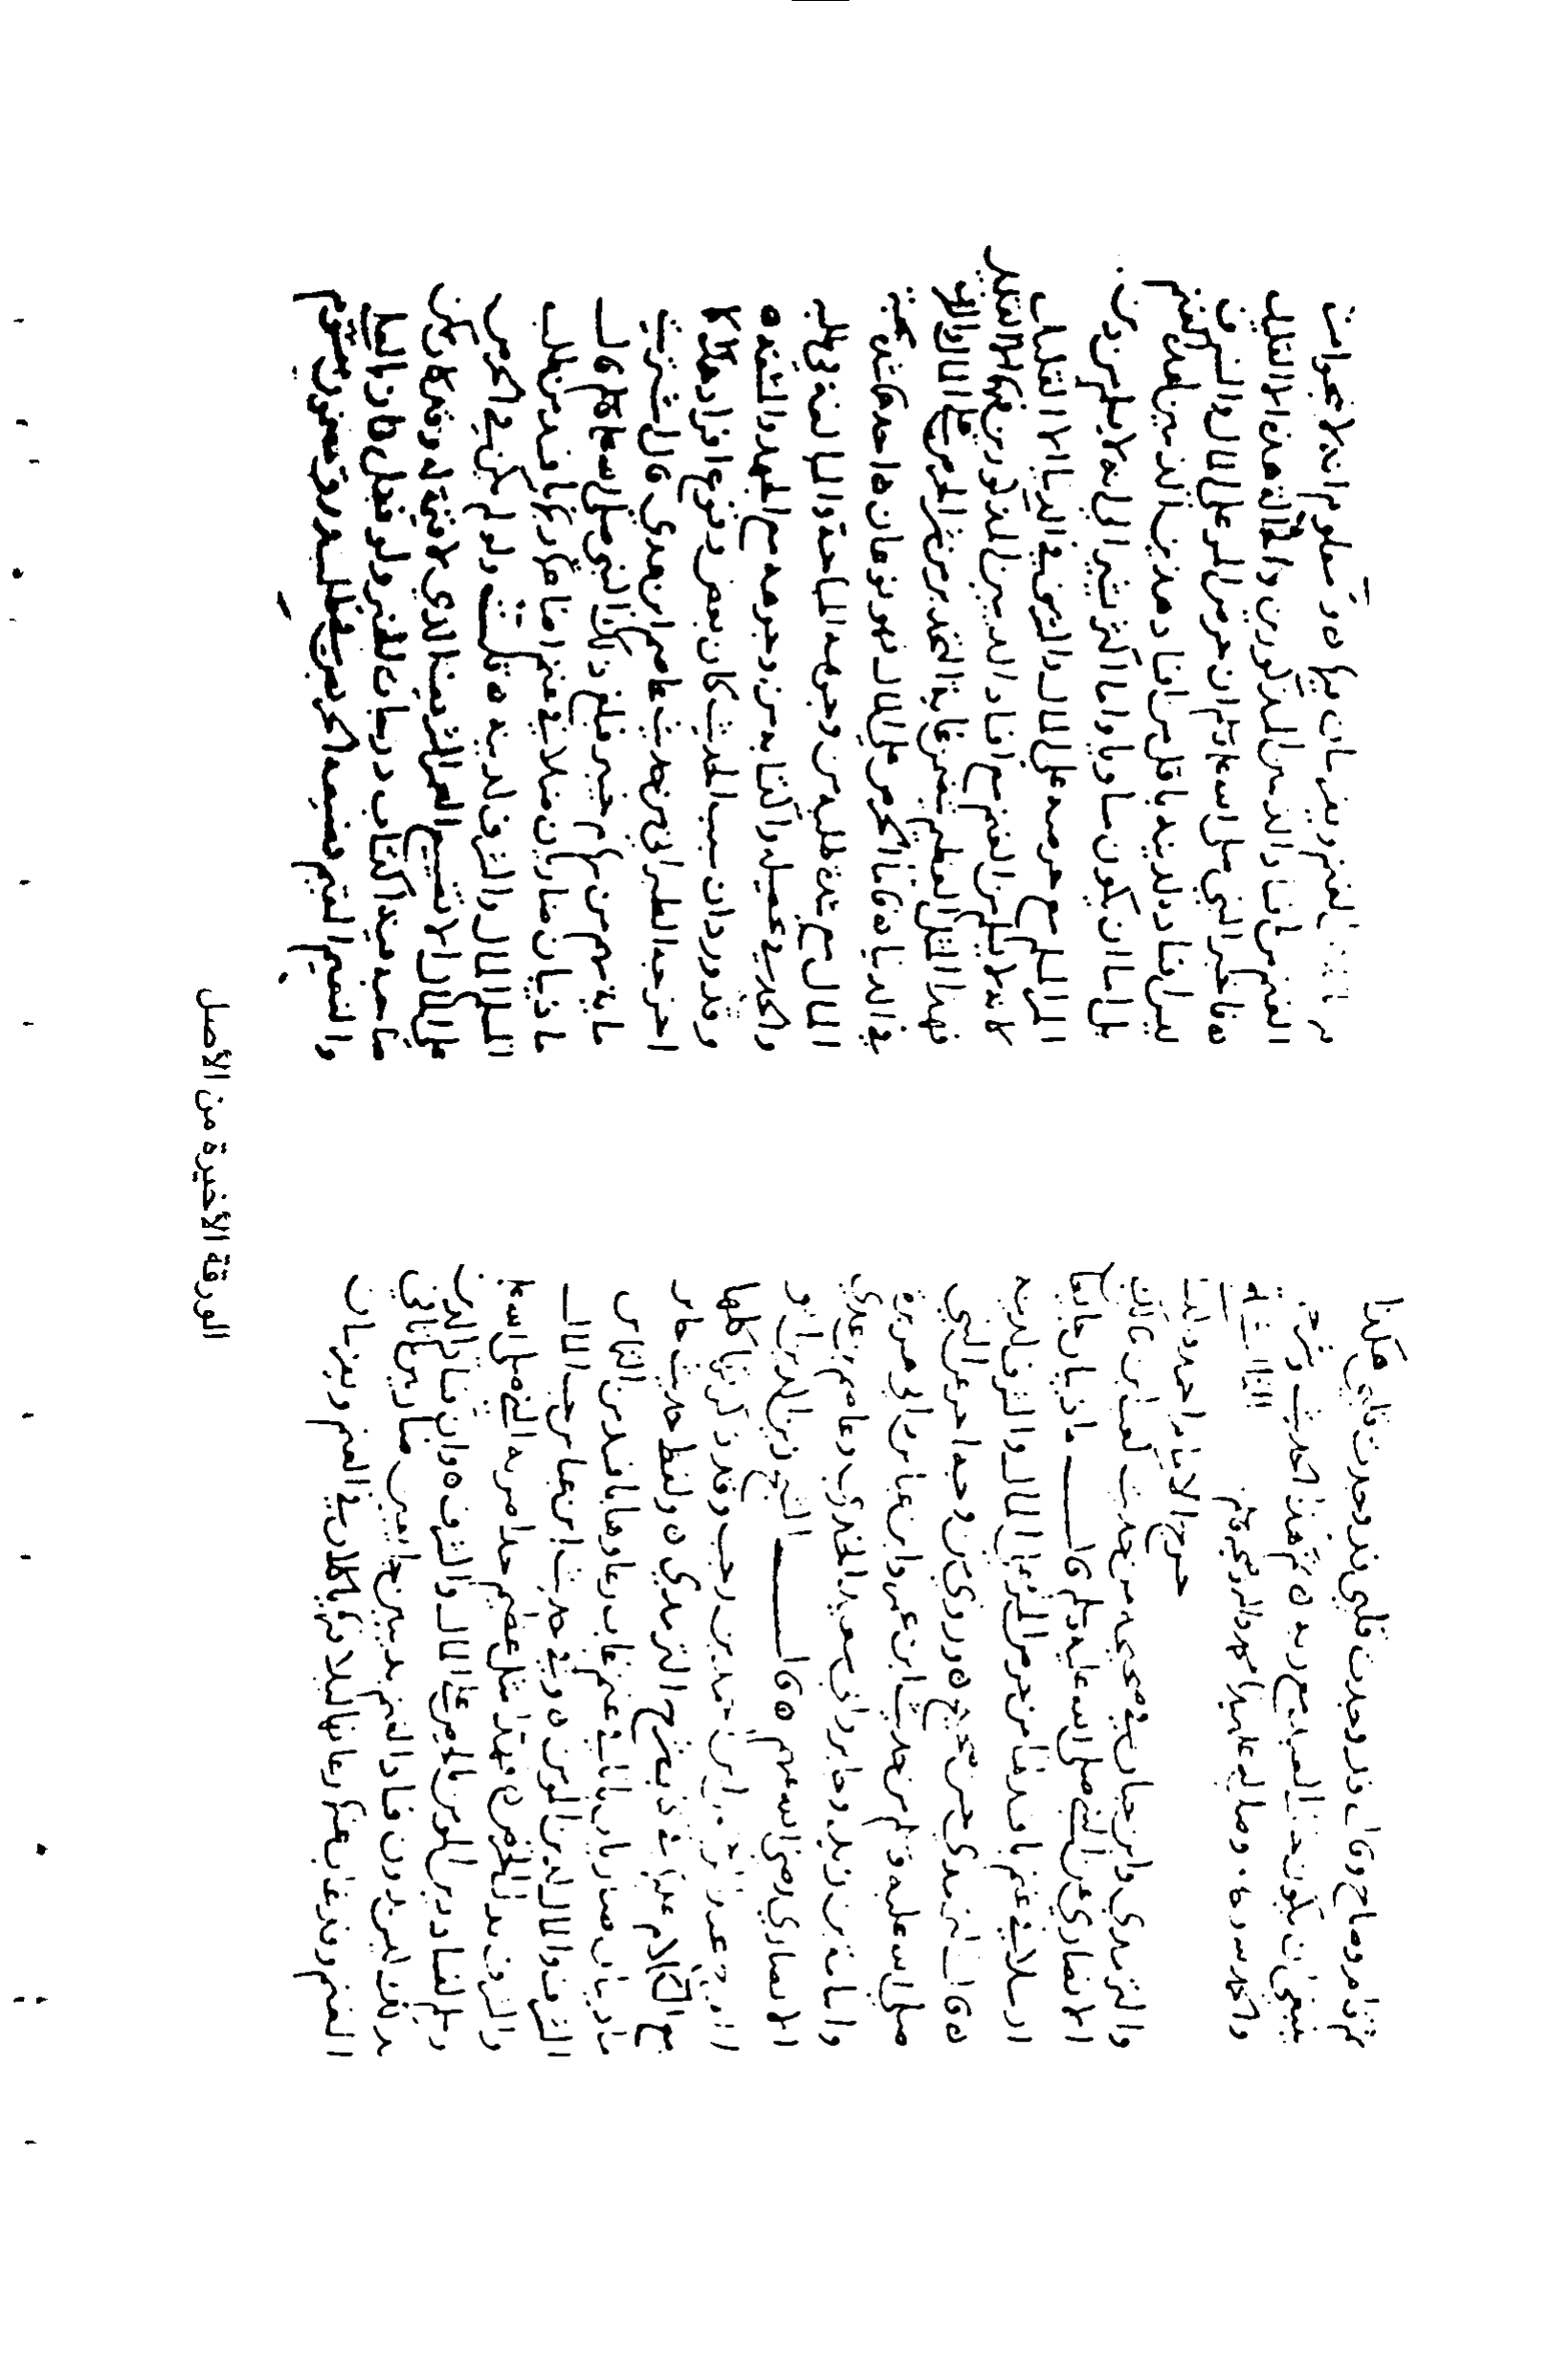 ثم قام وصاح وقال قد وجدت قلبي قد وجدت قلبي هكذا
ينبغي ان يكون حال العبد مع ربه ثم هذا الحديث وشرحه
والحمد لله وحده وصلى الله على سيدنا محمد واله وصحبه وسلم
خرج الامام احمد والنسائي
والترمذي وابن حبان في صحيحه من حديث كعب ابن مالك
الانصاري عن النبي صلى الله عليه وسلم قال ما ذيبان جايعان
ارسلا في غنم بافسد لها من حرص المرء على المال والشرف لدينه
قال الترمذي حسن صحيح وروي من وجه اخر عن النبي
صلى الله عليه وسلم من حديث ابن عمر وابن عباس وابي هريرة
واسامة بن زيد وجابر وابي سعيد الخدري وعاصم بن عدي
الانصاري رضي الله عنهم قال الشيخ زين الدين ابو
الفرج عبد الرحمن ابن احمد بن رجب وقد ذكرتها كلها
مع الكلام عليها في شرح الترمذي ولفظ حديث جابر
ما ذيبان ضاريان باتا في غنم غاب رعاوها بافسد من التماس
الشرف والمال لدين المومن وفي حديث ابن عباس حب المال
والشرف بدل الحرص فهذا مثل عظيم جدا ضربه النبي صلى الله
عليه وسلم لفساد دين المومن بالحرص على المال والشرف وان فساد الدين
بذلك ليس بدون فساد الغنم بذيبين جايعين ضاريين باتا في
الغنم وقد غاب عنها رعاها ليلا فهما ياكلان في الغنم ويفترسان
ومعلوم انه لا ينجو من
الغنم من افساد الذيبين المذكورين والحالة هذه الا القليل
فاخبر النبي صلى الله عليه وسلم ان حرص المرء على المال والشرف
ليس افساده لدينه باقل من افساد هذين الذيبين لهذه الغنم
بل اما ان يكون مساويا واما اكثر يشير الى انه لا يسلم من دين
المسلم مع حرصه على المال والشرف في الدنيا الا القليل
كما انه لا يسلم من الغنم مع افساد الذيبين المذكورين فيها الا القليل
فهذا المثل العظيم يتضمن غاية التحذير من شر الحرص على المال والشرف
في الدنيا فاما الحرص على المال فهو نوعان احدهما شدة محبة
المال مع شدة طلبه من وجوهه المباحة والمبالغة في طلبه
والجد في تحصيله واكتسابه من وجوهه مع الجهد والمشقة
وقد ورد ان سبب الحديث كان بعض وقوع افراد هذا كما
اخرجه الطبراني من حديث عاصم ابن عدي قال اشتريت
ماية سهم من سهام خيبر فبلغ ذلك النبي صلى الله عليه وسلم قال
ما ذيبان ضاريان ضلا في غنم اضاعها ربها بافسد من طلب
المسلم المال والشرف لدينه قلت ولو لم يكن في الحرص
على المال الا تضييع العمر الشريف الذي لا قيمة له وقد كان يمكن
صاحبه فيه اكتساب درجات
والنعيم المقيم فضيعه الحرص في طلب رزق مضمون مقسوم
الورقة الأخيرة من الأصل